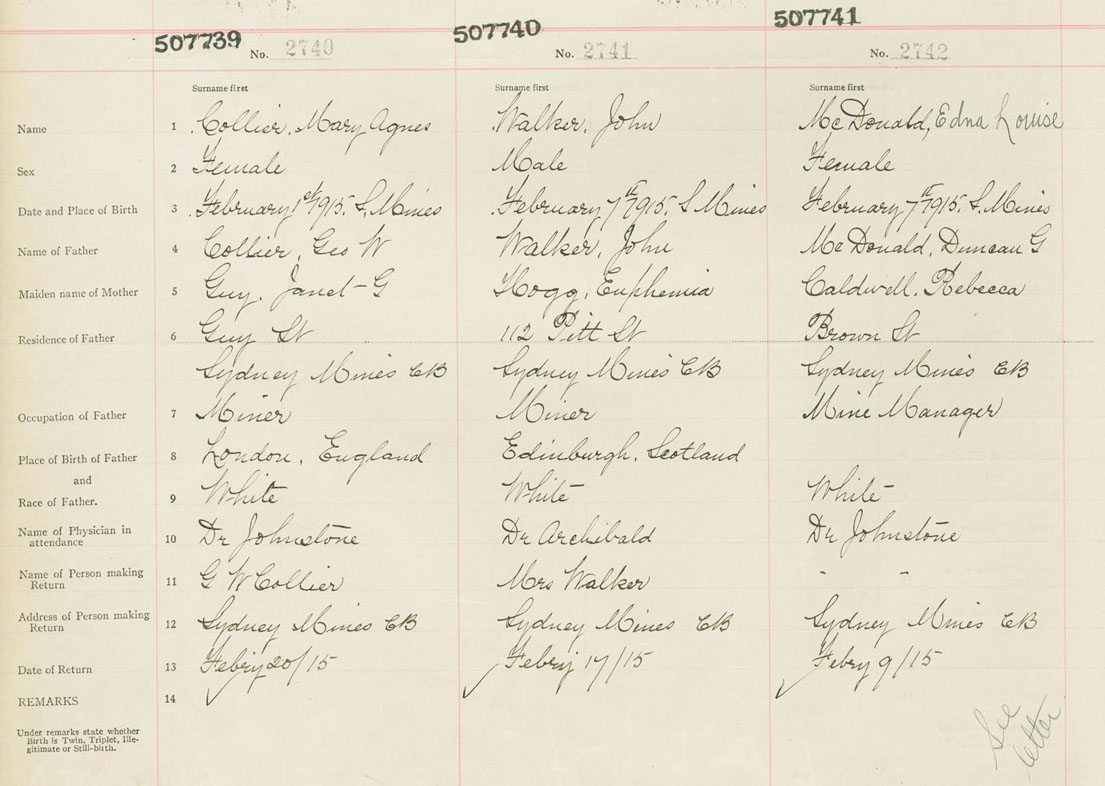 507739 507740 507741
No. 2740 No. 2741 No. 2742
Surname first Surname first Surname first
Name 1 Collier, Mary Agnes Walker, John McDonald, Edna Louise
Sex 2 Female Male Female
Date and Place of Birth 3 February 1st 1915. S. Mines February 7th 1915. S Mines February 7th 1915. S. Mines
Name of Father 4 Collier, Geo W Walker, John McDonald, Duncan G
Maiden name of Mother 5 Guy, Janet G Hogg, Euphemia Caldwell, Rebecca
Residence of Father 6 Guy St 112 Pitt St Brown St
Sydney Mines CB Sydney Mines CB Sydney Mines CB
Occupation of Father 7 Miner Miner Mine Manager
Place of Birth of Father 8 London, England Edinburgh, Scotland
and
Race of Father. 9 White White White
Name of Physician in attendance 10 Dr Johnstone Dr Archibald Dr Johnstone
Name of Person making Return 11 G W Collier Mrs Walker " "
Address of Person making Return 12 Sydney Mines CB Sydney Mines CB Sydney Mines CB
Date of Return 13 Febry 20/15 Febry 17/15 Febry 9/15
REMARKS 14
Under remarks state whether
Birth is Twin, Triplet, Ille-
gitimate or Still-birth.
See
letter